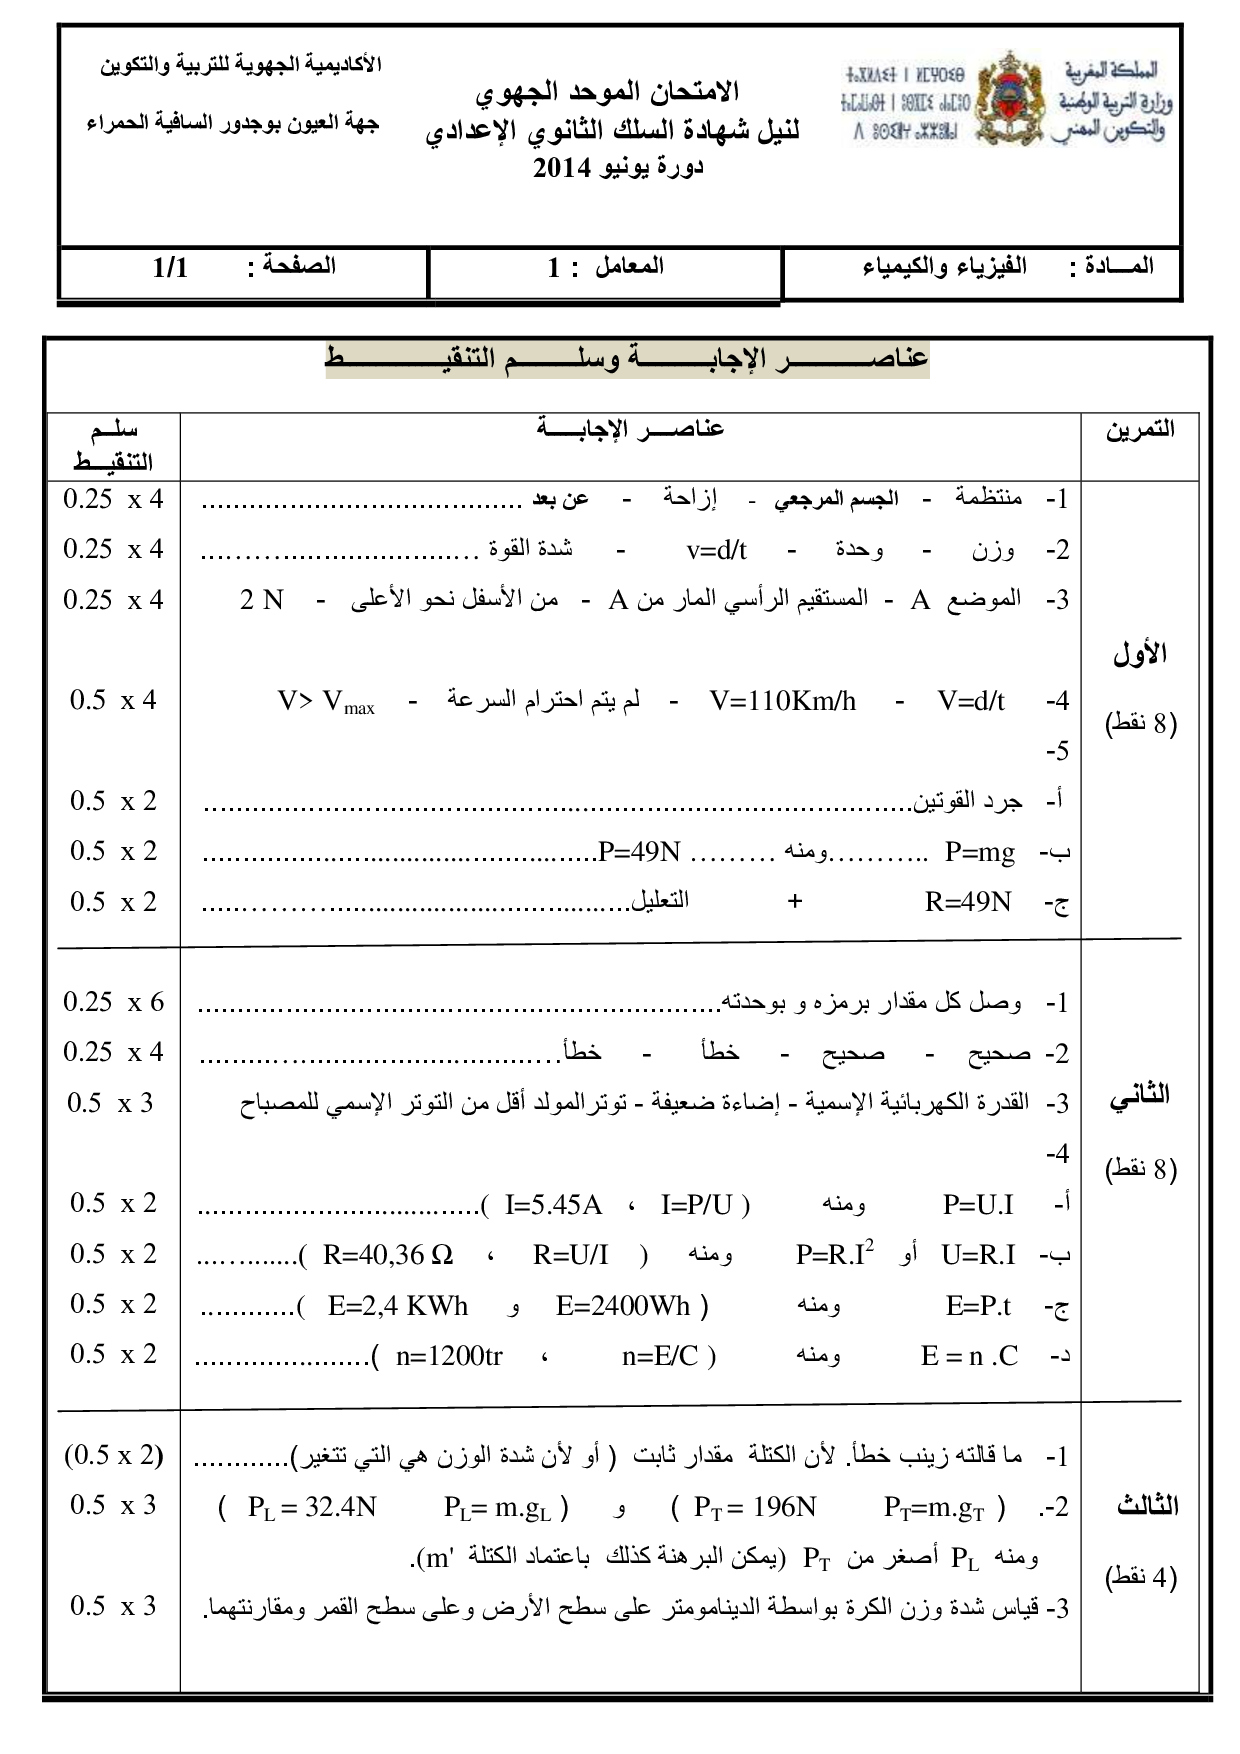 المملكة المغربية
وزارة التربية الوطنية
والتكوين المهني
ⵜⴰⴳⵍⴷⵉⵜ ⵏ ⵍⵎⵖⵔⵉⴱ
الامتحان الموحد الجهوي
لنيل شهادة السلك الثانوي الإعدادي
دورة يونيو 2014
الأكاديمية الجهوية للتربية والتكوين
جهة العيون بوجدور الساقية الحمراء
المـــادة : الفيزياء والكيمياء
المعامل : 1
الصفحة : 1/1
عناصــــــــــــر الإجابــــــــــــة وسلــــــــــم التنقيــــــــــــــط
التمرين
عناصـــر الإجابـــــة
سلــم
التنقيـــط
الأول
(8 نقط)
1- منتظمة - الجسم المرجعي - إزاحة - عن بعد ........................................ 0.25 x 4
2- وزن - وحدة - v=d/t - شدة القوة ................................... 0.25 x 4
3- الموضع A - المستقيم الرأسي المار من A - من الأسفل نحو الأعلى - 2 N 0.25 x 4
4- V=d/t - V=110Km/h - لم يتم احترام السرعة - V> Vmax 0.5 x 4
5-
أ- جرد القوتين........................................................................................ 0.5 x 2
ب- P=mg ...........ومنه ......... P=49N................................................. 0.5 x 2
ج- R=49N + التعليل..................................................... 0.5 x 2
الثاني
(8 نقط)
1- وصل كل مقدار برمزه و بوحدته................................................................. 0.25 x 6
2- صحيح - صحيح - خطأ - خطأ............................................. 0.25 x 4
3- القدرة الكهربائية الإسمية - إضاءة ضعيفة - توترالمولد أقل من التوتر الإسمي للمصباح 0.5 x 3
4-
أ- P=U.I ومنه ( I=P/U ، I=5.45A )................................... 0.5 x 2
ب- U=R.I أو P=R.I² ومنه ( R=U/I ، R=40,36 Ω )............. 0.5 x 2
ج- E=P.t ومنه ( E=2400Wh و E=2,4 KWh )............ 0.5 x 2
د- E = n .C ومنه ( n=E/C ، n=1200tr )...................... 0.5 x 2
الثالث
(4 نقط)
1- ما قالته زينب خطأ. لأن الكتلة مقدار ثابت ( أو لأن شدة الوزن هي التي تتغير)............ (0.5 x 2)
2-. ( PT=m.gT PT = 196N ) و ( PL= m.gL PL = 32.4N ) 0.5 x 3
ومنه PL أصغر من PT (يمكن البرهنة كذلك باعتماد الكتلة m').
3- قياس شدة وزن الكرة بواسطة الدينامومتر على سطح الأرض وعلى سطح القمر ومقارنتهما. 0.5 x 3